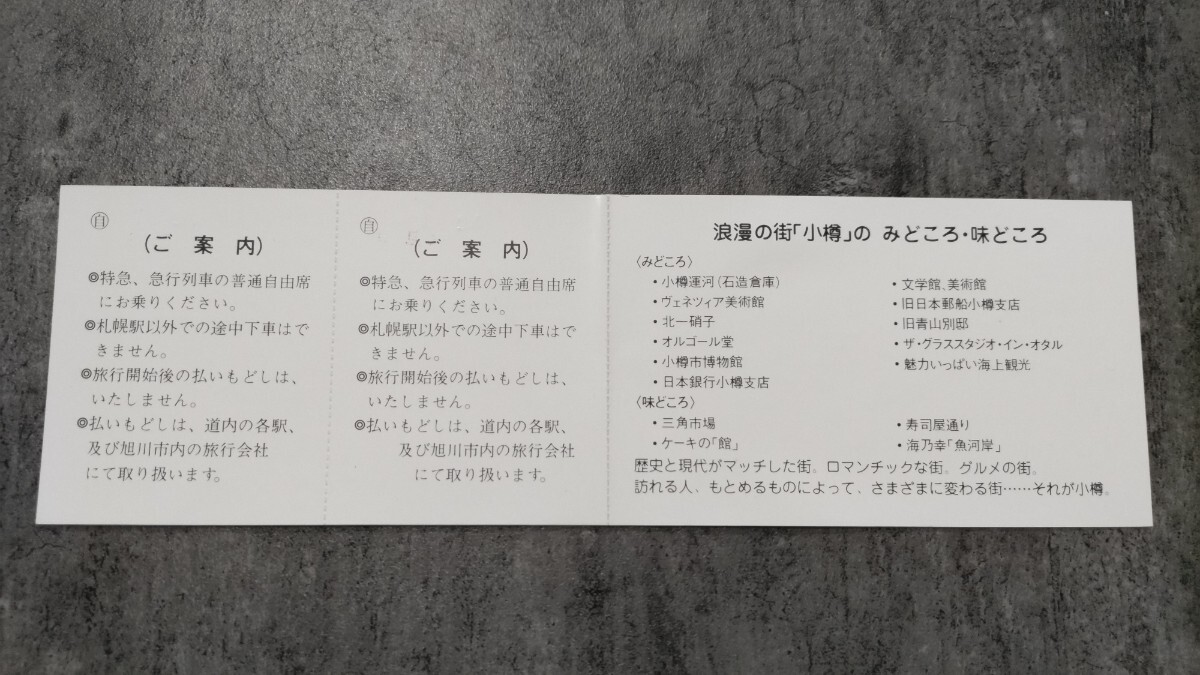 自
(ご案内)
◎特急、急行列車の普通自由席
にお乗りください。
◎札幌駅以外での途中下車はで
きません。
◎旅行開始後の払いもどしは、
いたしません。
◎払いもどしは、道内の各駅、
及び旭川市内の旅行会社
にて取り扱います。
自
(ご案内)
◎特急、急行列車の普通自由席
にお乗りください。
◎札幌駅以外での途中下車はで
きません。
◎旅行開始後の払いもどしは、
いたしません。
◎払いもどしは、道内の各駅、
及び旭川市内の旅行会社
にて取り扱います。
浪漫の街「小樽」の みどころ・味どころ
〈みどころ〉
・小樽運河(石造倉庫)
・ヴェネツィア美術館
・北一硝子
・オルゴール堂
・小樽市博物館
・日本銀行小樽支店
・文学館、美術館
・旧日本郵船小樽支店
・旧青山別邸
・ザ・グラススタジオ・イン・オタル
・魅力いっぱい海上観光
〈味どころ〉
・三角市場
・ケーキの「館」
・寿司屋通り
・海乃幸「魚河岸」
歴史と現代がマッチした街。ロマンチックな街。グルメの街。
訪れる人、もとめるものによって、さまざまに変わる街……それが小樽。